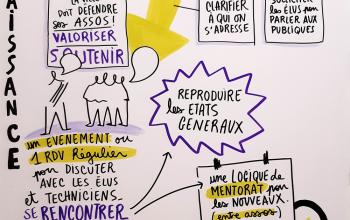 AISSANCE
LA VILLE
DOIT DÉFENDRE
SES ASSOS!
VALORISER
SOUTENIR
CLARIFIER
À QUI ON
S'ADRESSE
SOLLICITER
LES ÉLUS POUR
PARLER AUX
PUBLIQUES
REPRODUIRE
les ETATS
GENERAUX
UN EVENEMENT OU
1 RDV Régulier
pour DISCUTER
AVEC LES ÉLUS
et TECHNICIENS_
SE RENCONTRER
une LOGIQUE de
MENTORAT pour
les NOUVEAUX.
(entre assos